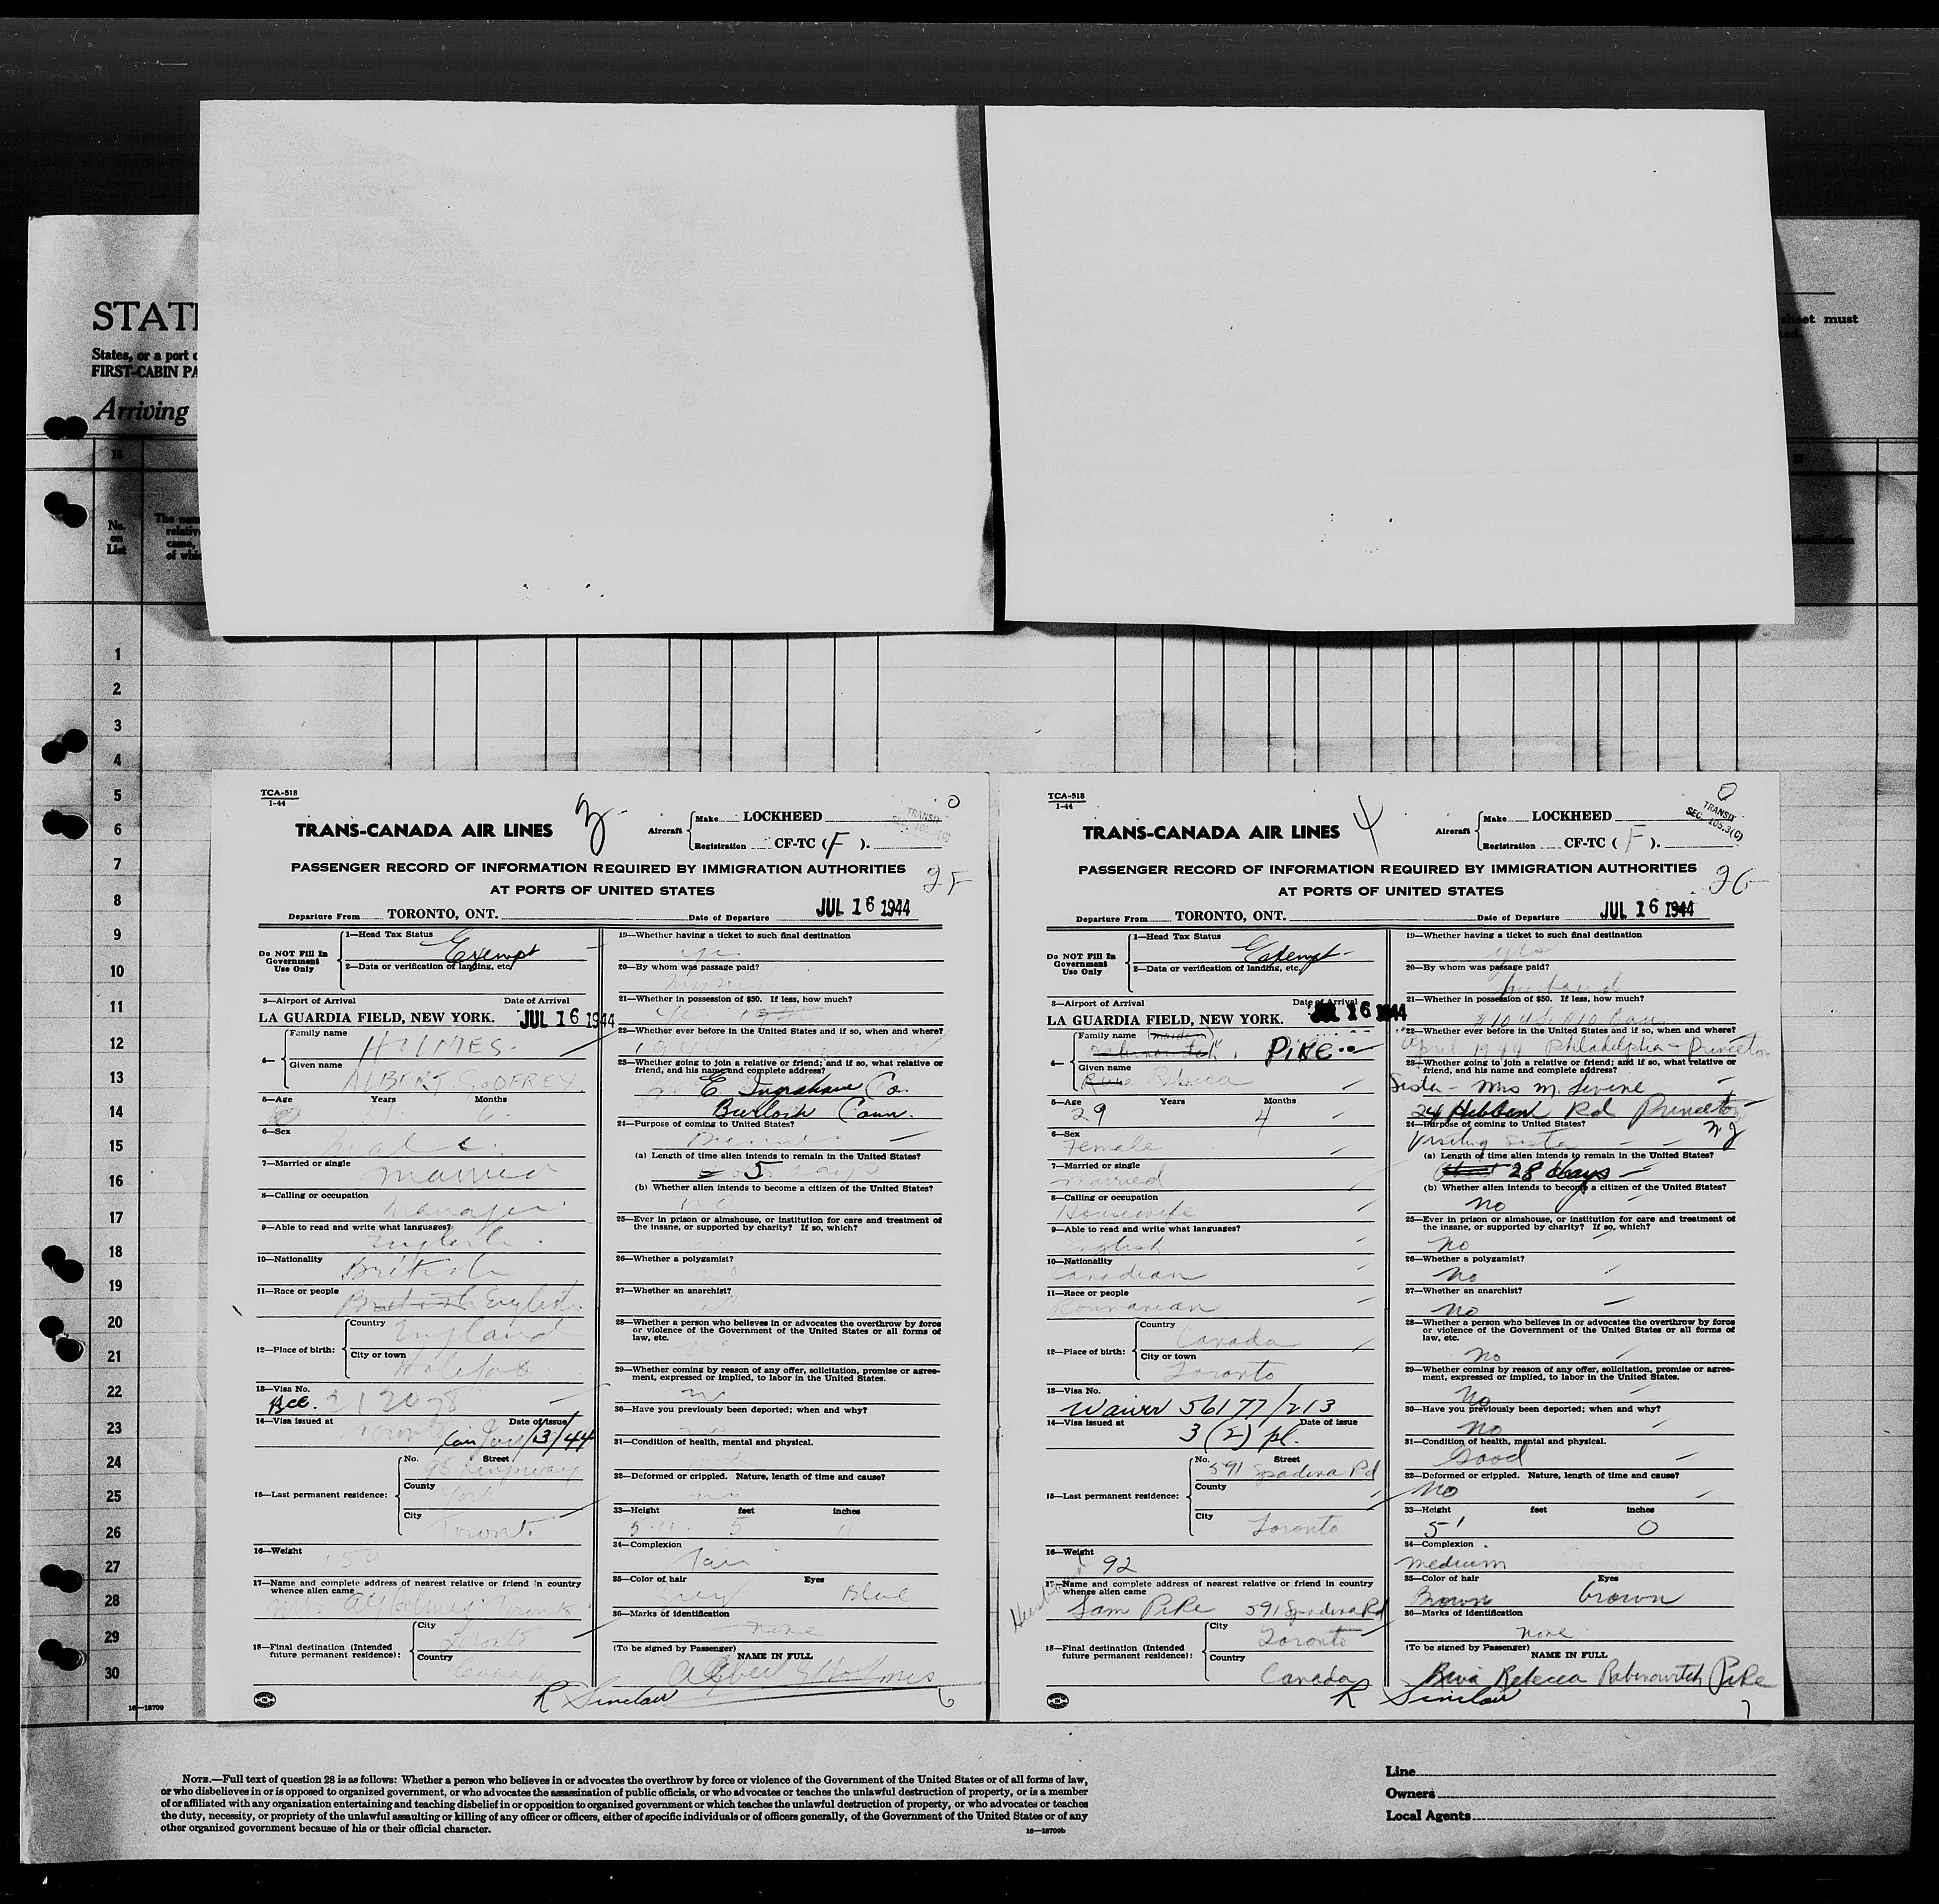 STAT
States, or a port
FIRST-CABIN PA
Arriving
sheet must
ted.
No.
on
List
1
2
3
4
5
6
7
8
9
10
11
12
13
14
15
16
17
18
19
20
21
22
23
24
25
26
27
28
29
30
16—18709
TCA-518
1-44
TRANS-CANADA AIR LINES
Aircraft
Make LOCKHEED
Registration CF-TC ( F ).
TRANSIT
PASSENGER RECORD OF INFORMATION REQUIRED BY IMMIGRATION AUTHORITIES
AT PORTS OF UNITED STATES
Departure From TORONTO, ONT. Date of Departure JUL 16 1944
Do NOT Fill In
Government
Use Only
1—Head Tax Status
Exempt
2—Data or verification of landing, etc.
3—Airport of Arrival Date of Arrival
LA GUARDIA FIELD, NEW YORK. JUL 16 1944
4— Family name
HOLMES.
Given name
ALBERT GODFREY
5—Age Years Months
6—Sex
male
7—Married or single
Married
8—Calling or occupation
Manager
9—Able to read and write what languages?
English
10—Nationality
British
11—Race or people
British English
12—Place of birth:
Country
England
City or town
Halifax
13—Visa No.
Bcc. 212078
14—Visa issued at Date of issue
Toronto /13/44
15—Last permanent residence:
No. Street
95 Kingsway
County
York
City
Toronto
16—Weight
150
17—Name and complete address of nearest relative or friend in country
whence alien came
Toronto
18—Final destination (Intended
future permanent residence):
City
Toronto
Country
Canada
R Sinclair
19—Whether having a ticket to such final destination
yes
20—By whom was passage paid?
21—Whether in possession of $50. If less, how much?
22—Whether ever before in the United States and if so, when and where?
23—Whether going to join a relative or friend; and if so, what relative or
friend, and his name and complete address?
E Ingraham Co.
Conn.
24—Purpose of coming to United States?
Business
(a) Length of time alien intends to remain in the United States?
5 days
(b) Whether alien intends to become a citizen of the United States?
no
25—Ever in prison or almshouse, or institution for care and treatment of
the insane, or supported by charity? If so, which?
26—Whether a polygamist?
27—Whether an anarchist?
28—Whether a person who believes in or advocates the overthrow by force
or violence of the Government of the United States or all forms of
law, etc.
29—Whether coming by reason of any offer, solicitation, promise or agree-
ment, expressed or implied, to labor in the United States.
no
30—Have you previously been deported; when and why?
31—Condition of health, mental and physical.
32—Deformed or crippled. Nature, length of time and cause?
no
33—Height feet inches
5-11. 5 11
34—Complexion
Fair
35—Color of hair Eyes
Grey Blue
36—Marks of identification
none
(To be signed by Passenger) NAME IN FULL
Albert G Holmes
6
TCA-518
1-44
TRANS-CANADA AIR LINES 4
Aircraft
Make LOCKHEED
Registration CF-TC ( F ).
TRANSIT
SEC. 105.3(C)
PASSENGER RECORD OF INFORMATION REQUIRED BY IMMIGRATION AUTHORITIES
AT PORTS OF UNITED STATES
Departure From TORONTO, ONT. Date of Departure JUL 16 1944
Do NOT Fill In
Government
Use Only
1—Head Tax Status
Exempt
2—Data or verification of landing, etc.
3—Airport of Arrival Date of Arrival
LA GUARDIA FIELD, NEW YORK. JUL 16 1944
4— Family name (maiden)
PIKE
Given name
Rebecca
5—Age Years Months
29 4
6—Sex
Female
7—Married or single
Married
8—Calling or occupation
Housewife
9—Able to read and write what languages?
English
10—Nationality
Canadian
11—Race or people
Roumanian
12—Place of birth:
Country
Canada
City or town
Toronto
13—Visa No.
Waiver 56177/213
14—Visa issued at Date of issue
3 (2) pl.
15—Last permanent residence:
No. Street
591 Spadina Rd
County
City
Toronto
16—Weight
92
17—Name and complete address of nearest relative or friend in country
whence alien came
Husband
Sam Pike 591 Spadina Rd
18—Final destination (Intended
future permanent residence):
City
Toronto
Country
Canada
R Sinclair
19—Whether having a ticket to such final destination
yes
20—By whom was passage paid?
husband
21—Whether in possession of $50. If less, how much?
22—Whether ever before in the United States and if so, when and where?
April 1944 Philadelphia - Princeton
23—Whether going to join a relative or friend; and if so, what relative or
friend, and his name and complete address?
Sister - Mrs M. Levine
24 Hibben Rd Princeton
N J
24—Purpose of coming to United States?
Visiting Sister
(a) Length of time alien intends to remain in the United States?
28 days
(b) Whether alien intends to become a citizen of the United States?
no
25—Ever in prison or almshouse, or institution for care and treatment of
the insane, or supported by charity? If so, which?
no
26—Whether a polygamist?
no
27—Whether an anarchist?
no
28—Whether a person who believes in or advocates the overthrow by force
or violence of the Government of the United States or all forms of
law, etc.
no
29—Whether coming by reason of any offer, solicitation, promise or agree-
ment, expressed or implied, to labor in the United States.
No
30—Have you previously been deported; when and why?
No
31—Condition of health, mental and physical.
Good
32—Deformed or crippled. Nature, length of time and cause?
No
33—Height feet inches
5' 0
34—Complexion
medium
35—Color of hair Eyes
Brown brown
36—Marks of identification
none
(To be signed by Passenger) NAME IN FULL
Rebecca Rabinowitch Pike
7
NOTE.—Full text of question 28 is as follows: Whether a person who believes in or advocates the overthrow by force or violence of the Government of the United States or of all forms of law,
or who disbelieves in or is opposed to organized government, or who advocates the assassination of public officials, or who advocates or teaches the unlawful destruction of property, or is a member
of or affiliated with any organization entertaining and teaching disbelief in or opposition to organized government or which teaches the unlawful destruction of property, or who advocates or teaches
the duty, necessity, or propriety of the unlawful assaulting or killing of any officer or officers, either of specific individuals or of officers generally, of the Government of the United States or of any
other organized government because of his or their official character.
16—18709b
Line
Owners
Local Agents